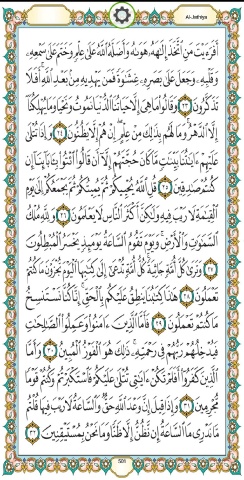 Al-Jathiya
أَفَرَءَيْتَ مَنِ ٱتَّخَذَ إِلَٰهَهُۥ هَوَىٰهُ وَأَضَلَّهُ ٱللَّهُ عَلَىٰ عِلْمٍ وَخَتَمَ عَلَىٰ سَمْعِهِۦ
وَقَلْبِهِۦ وَجَعَلَ عَلَىٰ بَصَرِهِۦ غِشَٰوَةً فَمَن يَهْدِيهِ مِنۢ بَعْدِ ٱللَّهِ أَفَلَا
تَذَكَّرُونَ ٢٣ وَقَالُوا۟ مَا هِىَ إِلَّا حَيَاتُنَا ٱلدُّنْيَا نَمُوتُ وَنَحْيَا وَمَا يُهْلِكُنَآ
إِلَّا ٱلدَّهْرُ وَمَا لَهُم بِذَٰلِكَ مِنْ عِلْمٍ إِنْ هُمْ إِلَّا يَظُنُّونَ ٢٤ وَإِذَا تُتْلَىٰ
عَلَيْهِمْ ءَايَٰتُنَا بَيِّنَٰتٍ مَّا كَانَ حُجَّتَهُمْ إِلَّآ أَن قَالُوا۟ ٱئْتُوا۟ بِـَٔابَآئِنَآ إِن
كُنتُمْ صَٰدِقِينَ ٢٥ قُلِ ٱللَّهُ يُحْيِيكُمْ ثُمَّ يُمِيتُكُمْ ثُمَّ يَجْمَعُكُمْ إِلَىٰ يَوْمِ
ٱلْقِيَٰمَةِ لَا رَيْبَ فِيهِ وَلَٰكِنَّ أَكْثَرَ ٱلنَّاسِ لَا يَعْلَمُونَ ٢٦ وَلِلَّهِ مُلْكُ
ٱلسَّمَٰوَٰتِ وَٱلْأَرْضِ وَيَوْمَ تَقُومُ ٱلسَّاعَةُ يَوْمَئِذٍ يَخْسَرُ ٱلْمُبْطِلُونَ
٢٧ وَتَرَىٰ كُلَّ أُمَّةٍ جَاثِيَةً كُلُّ أُمَّةٍ تُدْعَىٰٓ إِلَىٰ كِتَٰبِهَا ٱلْيَوْمَ تُجْزَوْنَ مَا كُنتُمْ
تَعْمَلُونَ ٢٨ هَٰذَا كِتَٰبُنَا يَنطِقُ عَلَيْكُم بِٱلْحَقِّ إِنَّا كُنَّا نَسْتَنسِخُ
مَا كُنتُمْ تَعْمَلُونَ ٢٩ فَأَمَّا ٱلَّذِينَ ءَامَنُوا۟ وَعَمِلُوا۟ ٱلصَّٰلِحَٰتِ
فَيُدْخِلُهُمْ رَبُّهُمْ فِى رَحْمَتِهِۦ ذَٰلِكَ هُوَ ٱلْفَوْزُ ٱلْمُبِينُ ٣٠ وَأَمَّا
ٱلَّذِينَ كَفَرُوٓا۟ أَفَلَمْ تَكُنْ ءَايَٰتِى تُتْلَىٰ عَلَيْكُمْ فَٱسْتَكْبَرْتُمْ وَكُنتُمْ قَوْمًا
مُّجْرِمِينَ ٣١ وَإِذَا قِيلَ إِنَّ وَعْدَ ٱللَّهِ حَقٌّ وَٱلسَّاعَةُ لَا رَيْبَ فِيهَا قُلْتُم
مَّا نَدْرِى مَا ٱلسَّاعَةُ إِن نَّظُنُّ إِلَّا ظَنًّا وَمَا نَحْنُ بِمُسْتَيْقِنِينَ ٣٢
501